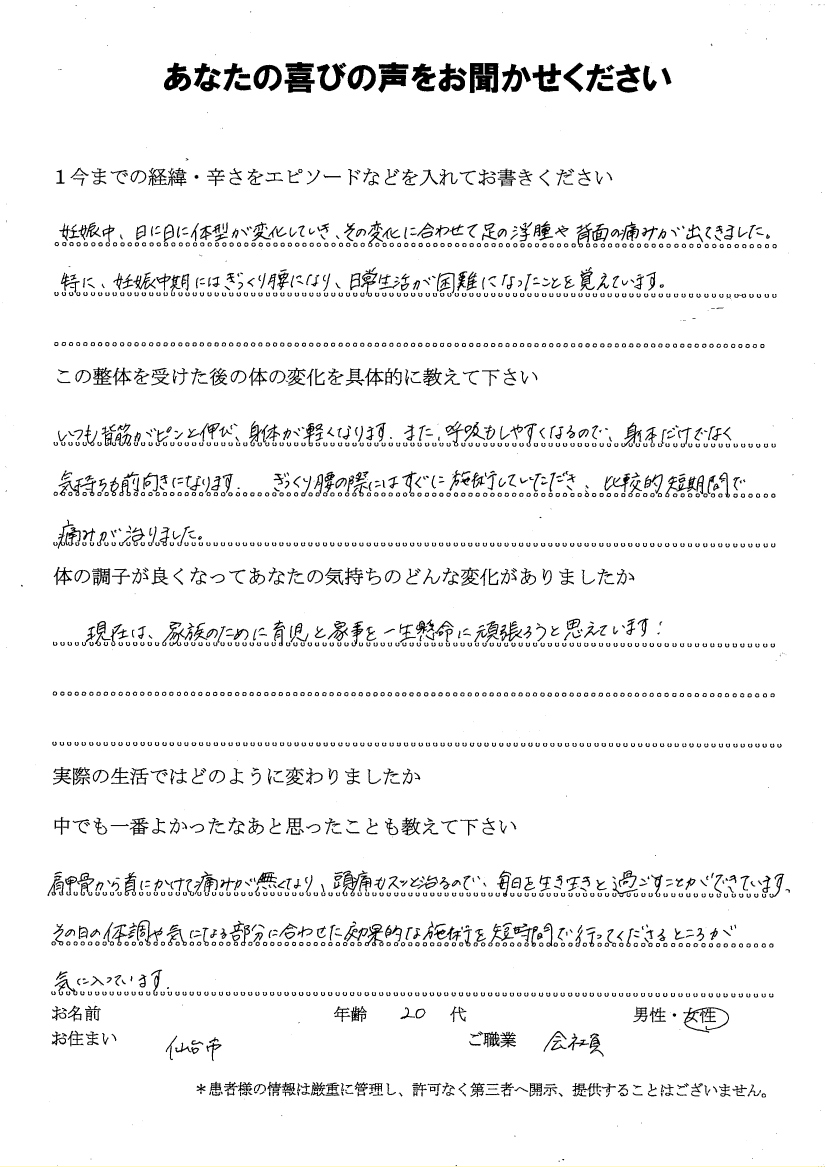 あなたの喜びの声をお聞かせください
1今までの経緯・辛さをエピソードなどを入れてお書きください
妊娠中、日に日に体型が変化していき、その変化に合わせて足の浮腫や背面の痛みが出てきました。
特に、妊娠中期にはぎっくり腰になり、日常生活が困難になったことを覚えています。
この整体を受けた後の体の変化を具体的に教えて下さい
いつも背筋がピンと伸び、身体が軽くなります。また、呼吸もしやすくなるので、身体だけでなく
気持ちも前向きになります。 ぎっくり腰の際にはすぐに施術していただき、比較的短期間で
痛みが治りました。
体の調子が良くなってあなたの気持ちのどんな変化がありましたか
現在は、家族のために育児と家事を一生懸命に頑張ろうと思えています!
実際の生活ではどのように変わりましたか
中でも一番よかったなあと思ったことも教えて下さい
肩甲骨から首にかけて痛みが無くなり、頭痛もスッと治るので、毎日を生き生きと過ごすことができています。
その日の体調や気になる部分に合わせた効果的な施術を短時間で行ってくださるところが
気に入っています。
お名前 年齢 20 代 男性・女性
お住まい 仙台市 ご職業 会社員
*患者様の情報は厳重に管理し、許可なく第三者へ開示、提供することはございません。